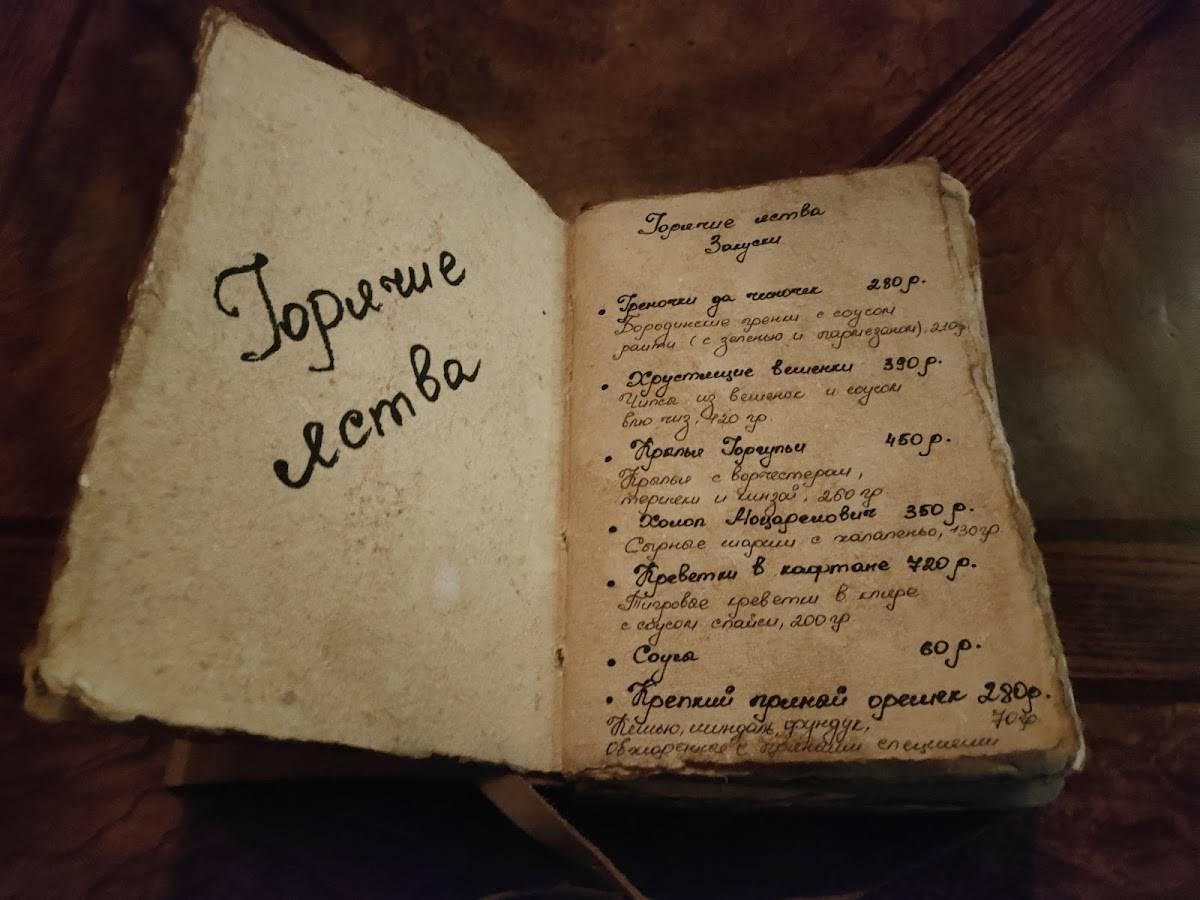 Горячие
яства
Горячие яства
Закуски
• Греночки да чесночек 280 р.
Бородинские гренки с соусом
раити (с зеленью и пармезаном), 210гр
• Хрустящие вешенки 390 р.
Чипсы из вешенок и соусом
блю чиз, 120 гр.
• Крылья Горгульи 450 р.
Крылья с ворчестером,
терияки и кинзой, 260 гр.
• Холоп Моцарелович 350 р.
Сырные шарики с халапеньо, 130гр
• Креветки в кафтане 720 р.
Тигровые креветки в кляре
с соусом спайси, 200 гр.
• Соусы 60 р.
• Крепкий пряный орешек 280р.
Кешью, миндаль, фундук, 70 гр
Обжаренные с пряными специями